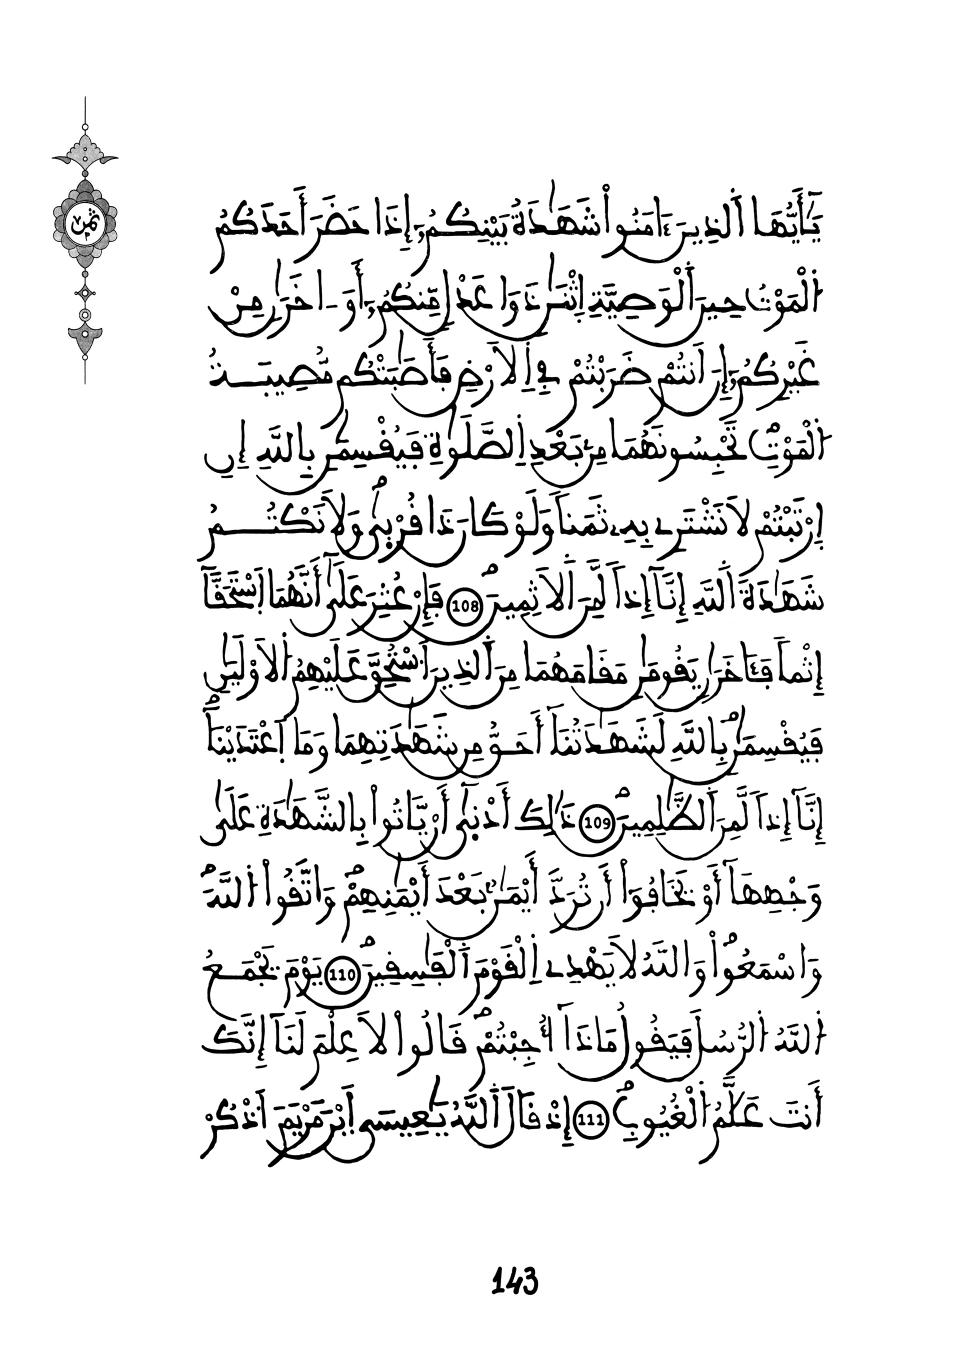 ثمن
يَٰٓأَيُّهَا اَ۬لذِينَ ءَامَنُواْ شَهَٰدَةُ بَيْنِكُمُۥٓ إِذَا حَضَرَ أَحَدَكُمُ
اُ۬لْمَوْتُ حِينَ اَ۬لْوَصِيَّةِ اِثْنَٰنِ ذَوَا عَدْلٖ مِّنكُمُۥٓ أَوَ اٰخَرَٰنِ مِنْ
غَيْرِكُمُۥٓ إِنَ اَنتُمْ ضَرَبْتُمْ فِے اِ۬لَارْضِ فَأَصَٰبَتْكُم مُّصِيبَةُ
اُ۬لْمَوْتِۖ تَحْبِسُونَهُمَا مِنۢ بَعْدِ اِ۬لصَّلَوٰةِ فَيُقْسِمَٰنِ بِاللَّهِ إِنِ
اِرْتَبْتُمْ لَا نَشْتَرِے بِهِۦ ثَمَناٗ وَلَوْ كَانَ ذَا قُرْبٜيٰۖ وَلَا نَكْتُمُ
شَهَٰدَةَ اَ۬للَّهِ إِنَّآ إِذاٗ لَّمِنَ اَ۬لَاثِمِينَۖ 108 فَإِنْ عُثِرَ عَلَيٰٓ أَنَّهُمَا اَ۪سْتَحَقَّآ
إِثْماٗ فَـَٔاخَرَٰنِ يَقُومَٰنِ مَقَامَهُمَا مِنَ اَ۬لذِينَ اَ۟سْتُحِقَّ عَلَيْهِمُ اُ۬لَاوْلَيَٰنِ
فَيُقْسِمَٰنِۖ بِاللَّهِ لَشَهَٰدَتُنَآ أَحَقُّ مِن شَهَٰدَتِهِمَا وَمَا اَ۪عْتَدَيْنَآۖ
إِنَّآ إِذاٗ لَّمِنَ اَ۬لظَّٰلِمِينَۖ 109 ذَٰلِكَ أَدْنٜيٰٓ أَنْ يَّاتُواْ بِالشَّهَٰدَةِ عَلَيٰ
وَجْهِهَآ أَوْ يَخَافُوٓاْ أَن تُرَدَّ أَيْمَٰنُۢ بَعْدَ أَيْمَٰنِهِمْۖ وَاتَّقُواْ اُ۬للَّهَۖ
وَاسْمَعُواْۖ وَاللَّهُ لَا يَهْدِے اِ۬لْقَوْمَ اَ۬لْفَٰسِقِينَۖ 110 يَوْمَ يَجْمَعُ
اُ۬للَّهُ اُ۬لرُّسُلَ فَيَقُولُ مَاذَآ أُجِبْتُمْۖ قَالُواْ لَا عِلْمَ لَنَآ إِنَّكَ
أَنتَ عَلَّٰمُ اُ۬لْغُيُوبِۖ 111 إِذْ قَالَ اَ۬للَّهُ يَٰعِيسَي اَ۪بْنَ مَرْيَمَ اَ۟ذْكُرْ
143